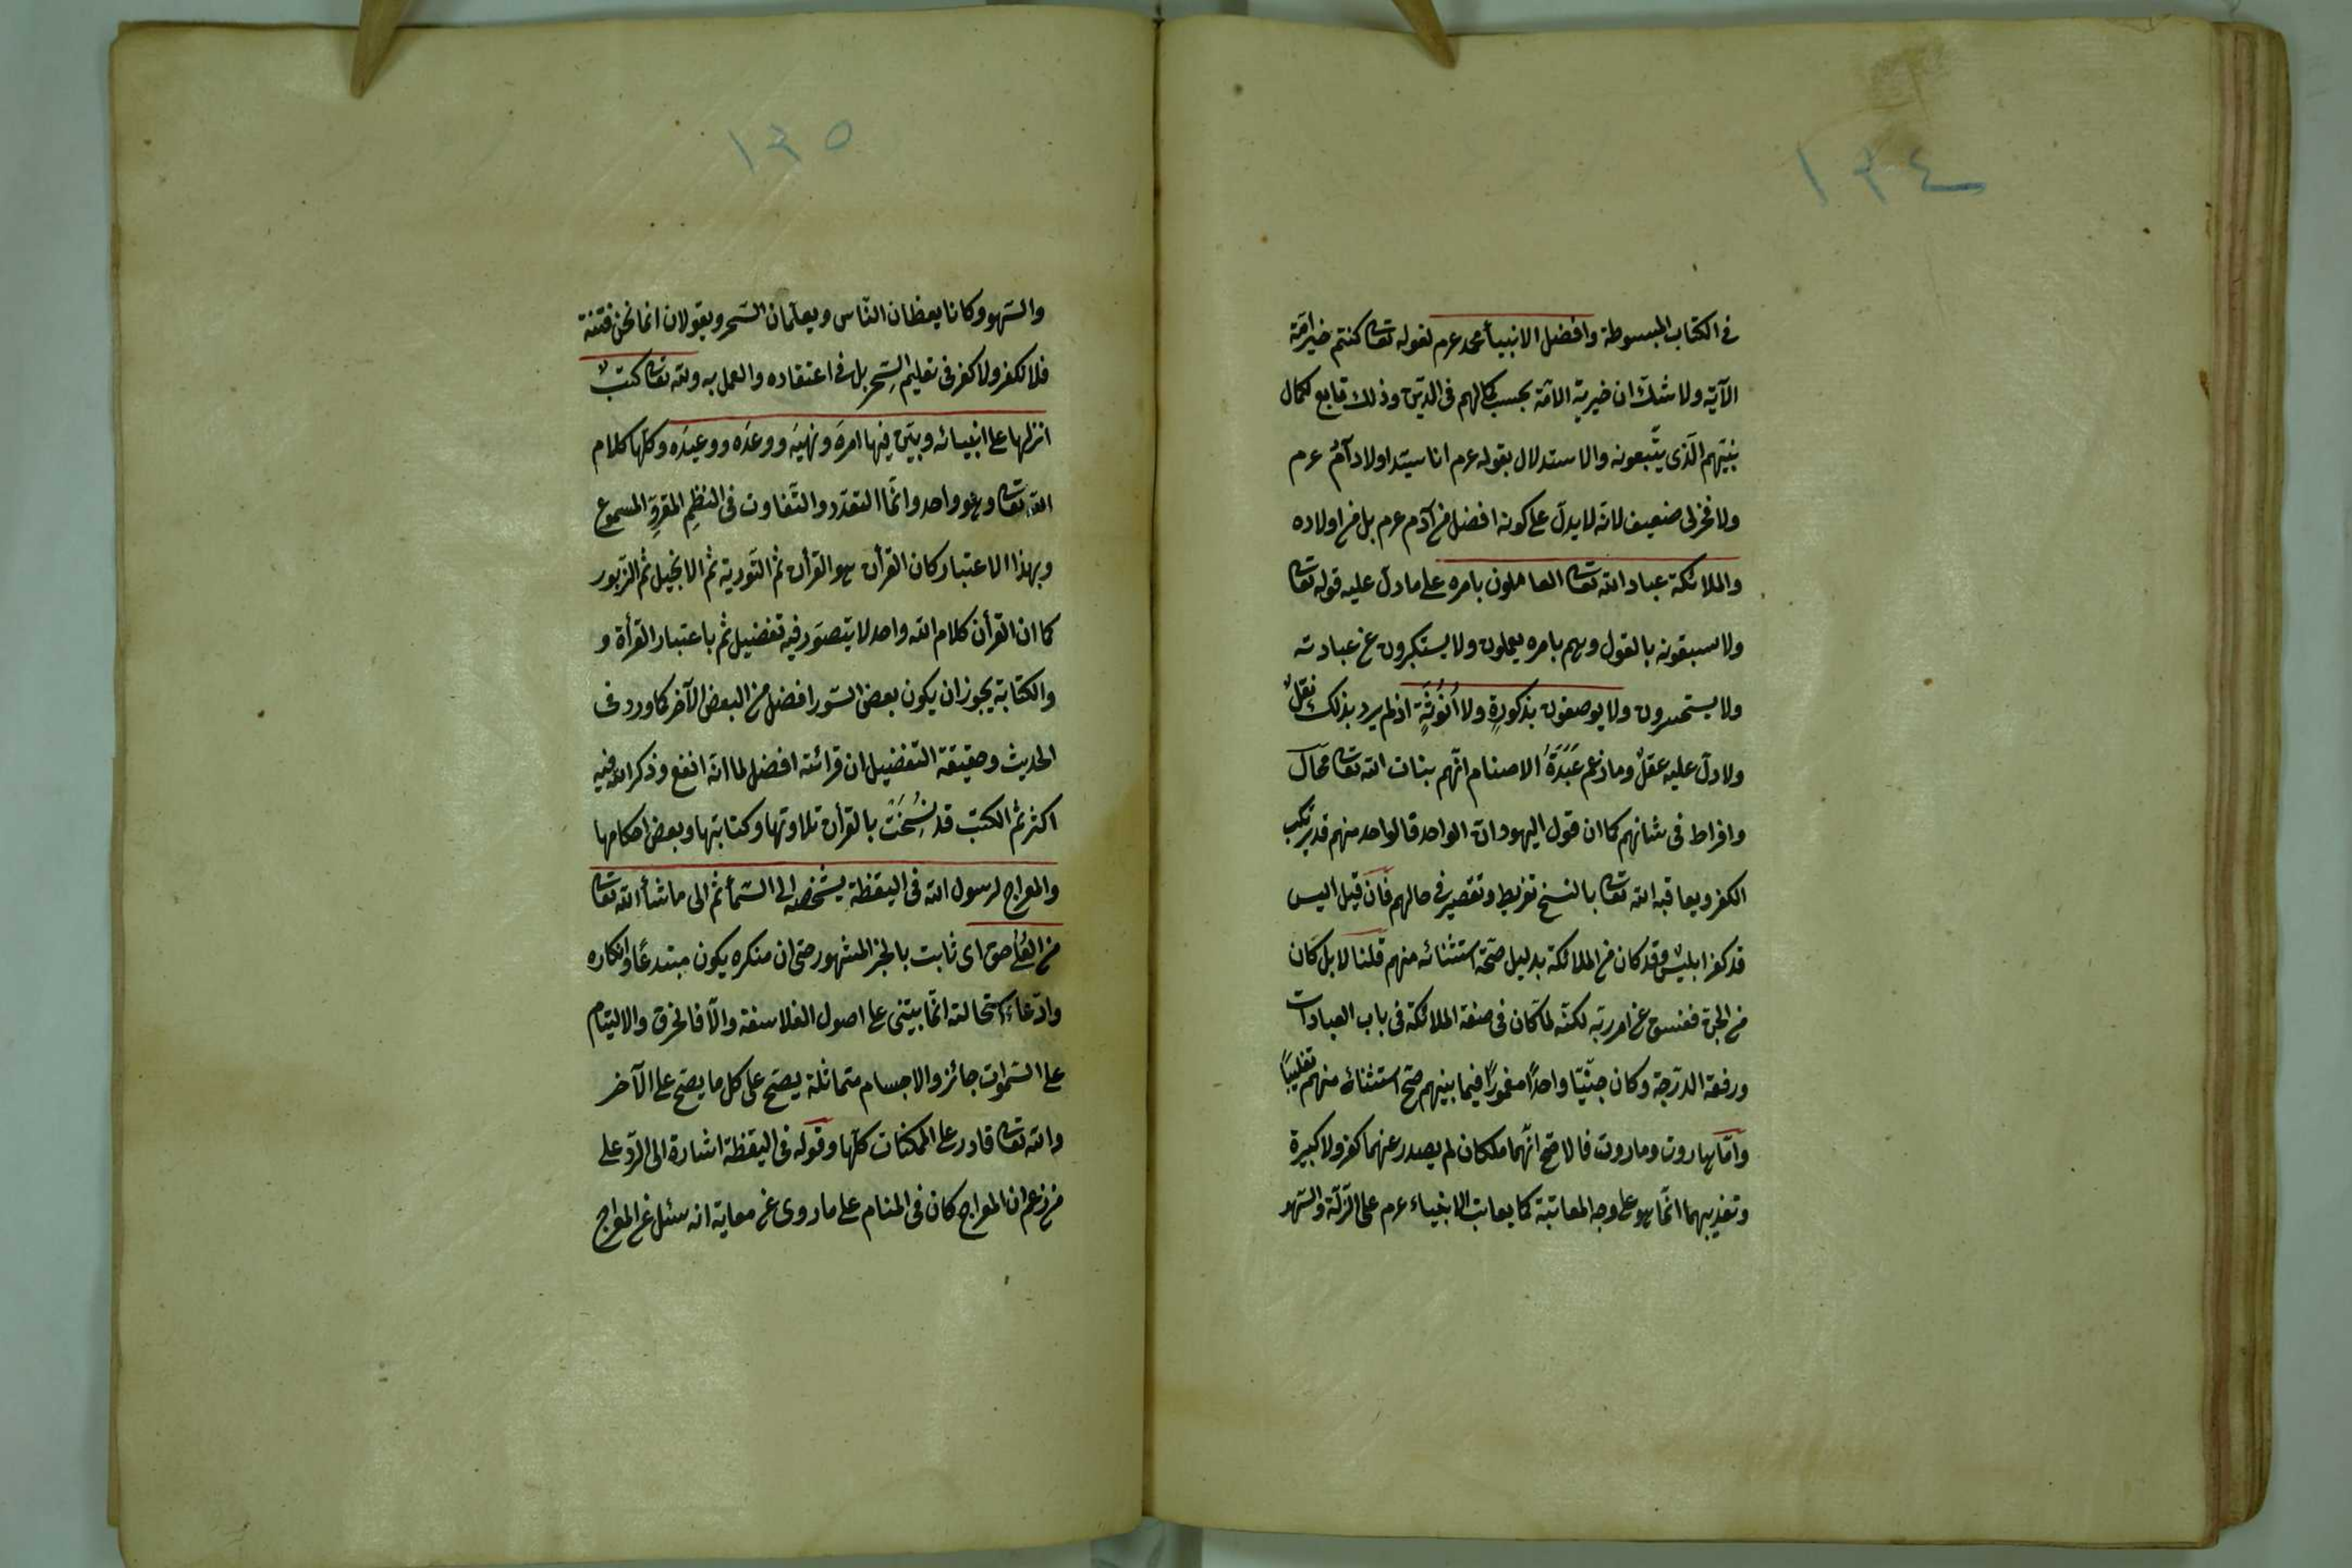 ١٣٤
في الكتاب المبسوطة وافضل الانبيأ محمد عرم لقوله تعا كنتم خير امّة
الآية ولا شكّ ان خيرية الامّة بحسب كمالهم فى الدّين وذلك تابع لكمال
نبيّهم الّذى يتّبعونه والاستدلال بقوله عرم انا سيّد اولاد آدم عرم
ولا فخر لى ضعيف لانه لا يدلّ على كونه افضل من آدم عرم بل من اولاده
والملائكة عباد الله تعا العاملون بامره على ما دلّ عليه قوله تعا
ولا سبقونه بالقول وهم بامره يعملون ولا يستكبرون عن عبادته
ولا يستحسرون ولا يوصفون بذكورةٍ ولا اُنُوثَةٍ اذ لم يرد بذلك نقلٌ
ولا دلّ عليه عقلٌ وما زعم عَبَدَةُ الاصنام انّهم بنات الله تعا محال
وافراط فى شانهم كما ان قول اليهود ان الواحد فالواحد منهم قد يرتكب
الكفر ويعاقبه الله تعا بالنسخ تفريط وتقصير في حالهم فان قيل اليس
قد كفر ابليس وقد كان من الملائكة بدليل صحّة استثنائه منهم قلنا لا بل كان
من الجنّ ففسق عن امر ربّه لكنّه لمّا كان فى صفة الملائكة فى باب العبادات
ورفعة الدّرجة وكان جنّيّا واحدًا مغمورًا فيما بينهم صحّ استثنائه منهم تغليبًا
وامّا هاروت وماروت فالاصحّ انّهما ملكان لم يصدر عنهما كفر ولا كبيرة
وتعذيبهما انّما هو على وجه المعاتبة كما يعاتب الانبياء عرم على الزّلّة والسّهو
١٣٥
والسّهو وكانا يعظان النّاس ويعلّمان السّحر ويقولان انما نحن فتنة
فلا تكفر ولا كفر فى تعليم السِّحر بل فى اعتقاده والعمل به ولله تعا كتبٌ
انزلها على انبيائه وبيّن فيها امرَه ونهيَه ووعدَه ووعيدَه وكلّها كلام
الله تعا وهو واحد وانّما التعدّد والتّفاوت فى النظمِ المقروِّ المسموع
وبهذا الاعتبار كان القرأن هو القرأن ثم التّورية ثم الانجيل ثم الزّبور
كما ان القرأن كلام الله واحد لا يتصوّر فيه تفضيل ثم باعتبار القرأة و
والكتابة يجوز ان يكون بعض السّور افضل من البعض الآخر كما ورد فى
الحديث وحقيقة التفضيل ان قرائته افضل لما انّه انفع وذكر الله فيه
اكثر ثم الكتب قد نُسِخَتْ بالقرأن تلاوتها وكتابتها وبعض احكامها
والمعراج لرسول الله فى اليقظة بشخصه الى السّمأ ثم الى ما شأ الله تعا
من العُلى حق اى ثابت بالخبر المشهور حتى ان منكره يكون مبتدعًا وانكاره
وادّعاءُ استحالته انّما يبتنى على اصول الفلاسفة والّا فالخرق والالتيام
على السّموات جائز والاجسام متماثلة يصحّ على كل ما يصحّ على الآخر
والله تعا قادر على الممكنات كلّها وقوله فى اليقظة اشارة الى الرّدّ على
من زعم ان المعراج كان فى المنام على ما روى عن معاية انه سئل عن المعراج